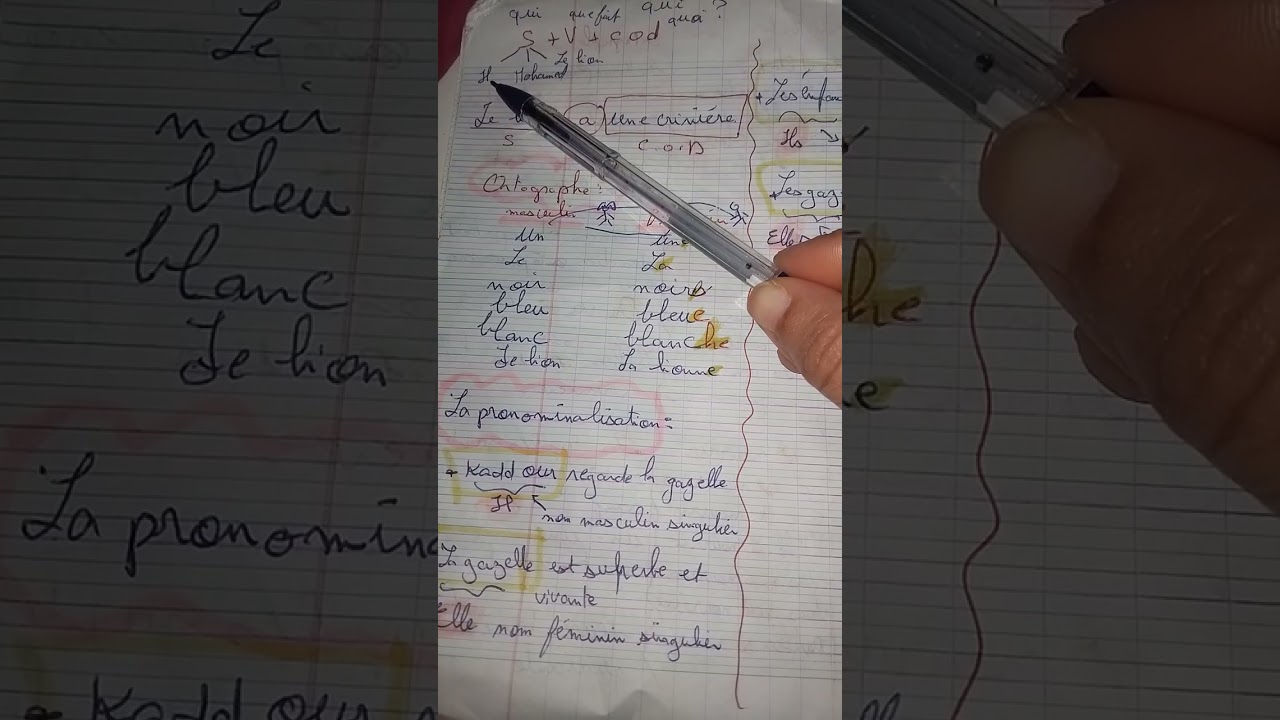 qui que fait qui quoi ?
S + V + cod
Il Mohamed Le lion
Le a une crinière
S C.O.D
Ortographe :
masculin
Un Une
Le La
noir noire
bleu bleue
blanc blanche
Le lion La lionne
La pronominalisation :
+ Kaddour regarde la gazelle
Il nom masculin singulier
La gazelle est superbe et
vivante
Elle nom féminin singulier
+ Les
Ils
+ Les gaz
Elle